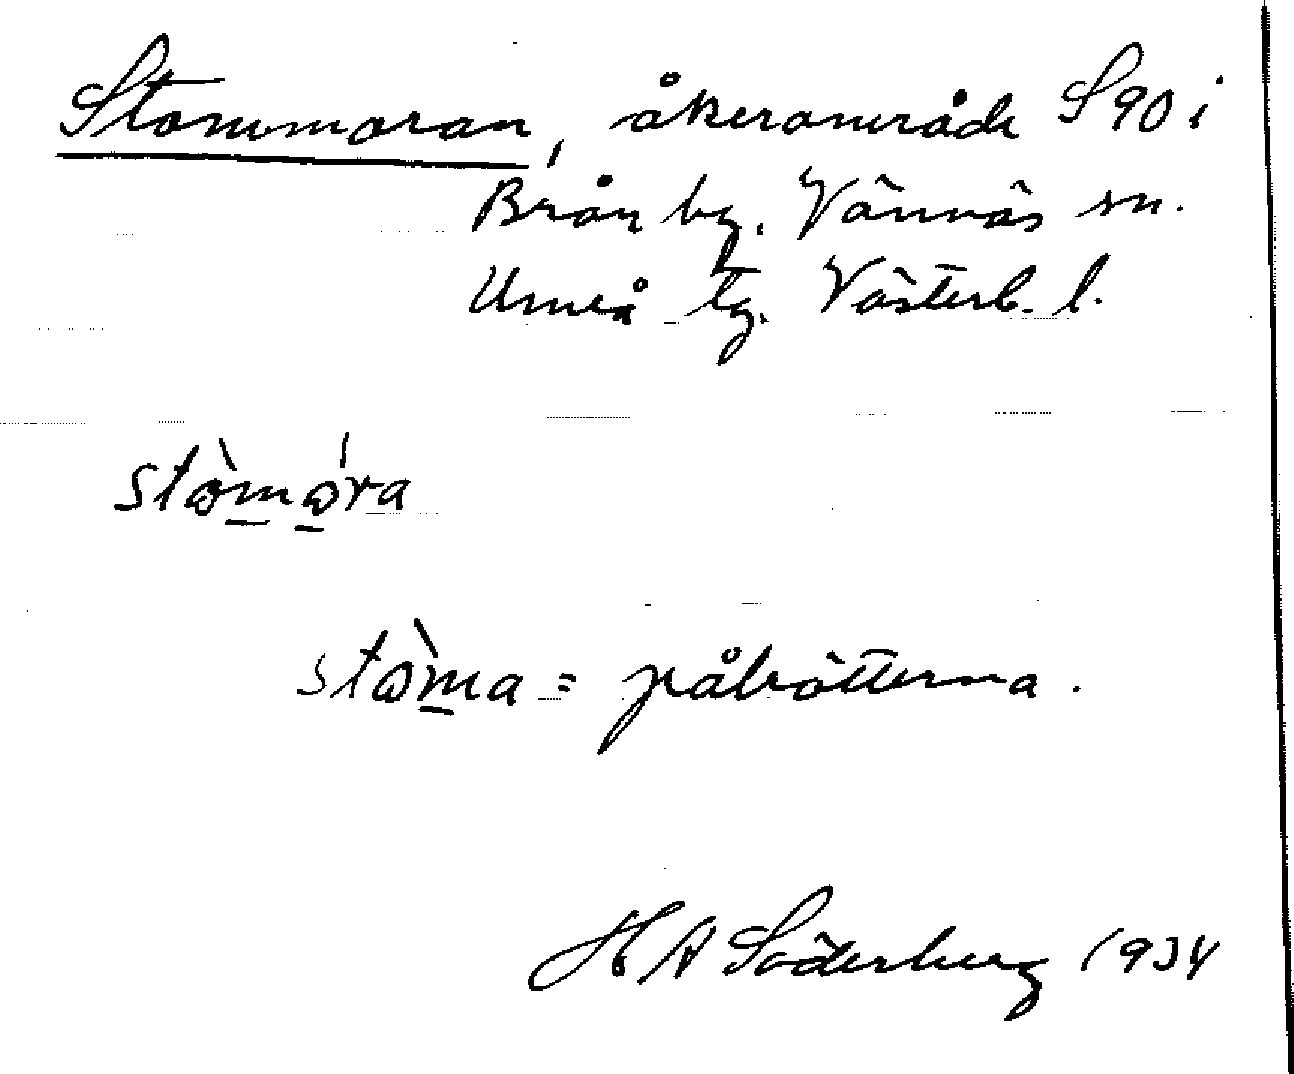 Stommoran, åkerområde S 90 i
Brån by. Vännäs sn.
Umeå tg. Västerb. l.
stɷ̀mɷ́ra
stɷ̀ma = pålrötterna.
H A Söderberg 1934